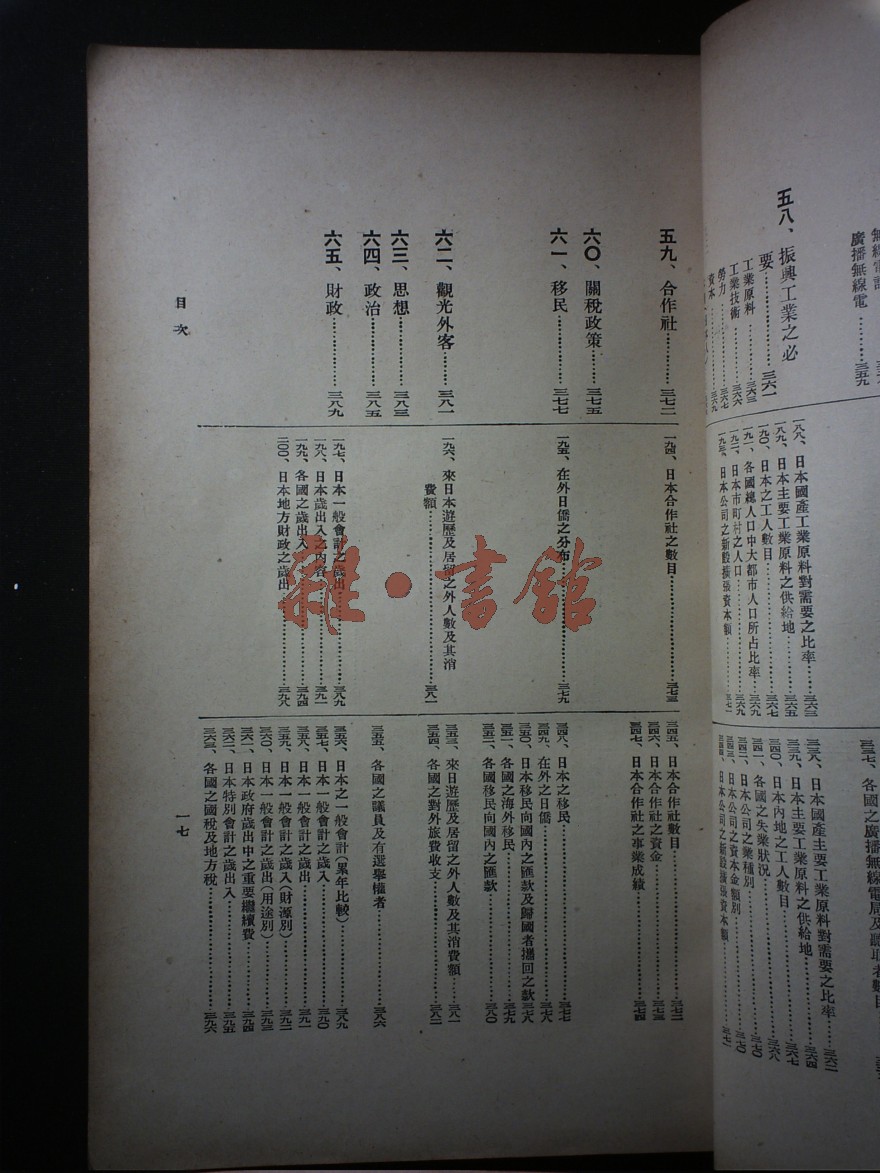 廣播無線電……三五九
五八、振興工業之必
要……三六一
工業原料……三六三
工業技術……三六六
勞力……三六七
資本……三六九
一八八、日本國產工業原料對需要之比率……三六三
一八九、日本主要工業原料之供給地……三六五
一九〇、日本之工人數目……三六七
一九一、各國總人口中大都市人口所占比率……三六九
一九二、日本市町村之人口……三六九
一九三、日本公司之新股擴張資本額……三七一
三三七、各國之廣播無線電局及聽取者數目
三三八、日本國產主要工業原料對需要之比率……三六二
三三九、日本主要工業原料之供給地……三六四
三四〇、日本內地之工人數目……三六七
三四一、各國之失業狀況……三六八
三四二、日本公司之業種別……三七〇
三四三、日本公司之資本金額別……三七〇
三四四、日本公司之新股擴張資本額……三七一
五九、合作社……三七二
六〇、關稅政策……三七五
六一、移民……三七七
六二、觀光外客……三八一
六三、思想……三八三
六四、政治……三八五
六五、財政……三八九
一九四、日本合作社之數目……三七三
一九五、在外日僑之分布……三七九
一九六、來日本遊歷及居留之外人數及其消
費額……三八一
一九七、日本一般會計之歲出……三八九
一九八、日本歲出入之內容……三九一
一九九、各國之歲出入……三九四
二〇〇、日本地方財政之歲出……三九八
三四五、日本合作社數目……三七二
三四六、日本合作社之資金……三七三
三四七、日本合作社之事業成績……三七四
三四八、日本之移民……三七七
三四九、在外之日僑……三七八
三五〇、日本移民向國內之匯款及歸國者攜回之款三七八
三五一、各國之海外移民……三七九
三五二、各國移民向國內之匯款……三八〇
三五三、來日遊歷及居留之外人數及其消費額……三八一
三五四、各國之對外旅費收支……三八二
三五五、各國之議員及有選舉權者……三八六
三五六、日本之一般會計(累年比較)……三八九
三五七、日本一般會計之歲入……三九〇
三五八、日本一般會計之歲出……三九一
三五九、日本一般會計之歲入(財源別)……三九二
三六〇、日本一般會計之歲出(用途別)……三九三
三六一、日本政府歲出中之重要繼續費……三九四
三六二、日本特別會計之歲出入……三九五
三六三、各國之國稅及地方稅……三九六
目次
一七
雜·書館